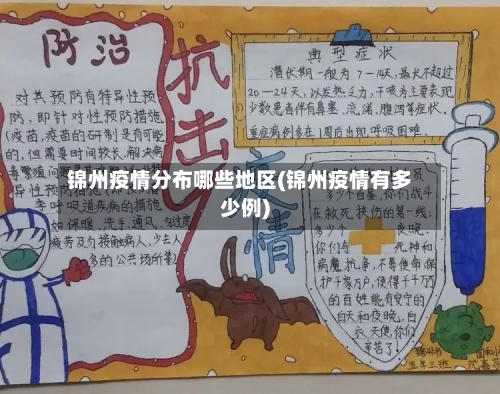 防治
对其预防有特异性预
防,即针对性预防措施
(疫苗,疫苗的研制是有可能
的,但需要时间较长,解决病
异性预防
呼吸道疾病的措施,
如保暖、洗手、通风、勿过度
疲劳及勿接触病人,少去人
多的公共场所等)
抗击
疫情
典型症状
潜伏期一般为7—14天,最长不超过
20—24天,以发热、乏力、干咳为主要表现
少数患者伴有鼻塞、流涕、腹泻等症状,
重症病例多在1周后出现呼吸困难。
锦州疫情分布哪些地区(锦州疫情有多
少例)
多少个白昼,你们战斗
在救死扶伤的第一线,
多少个夜晚,
你们与死神和
病魔抗争,不辱使命保
护千万户,使得千千万万
的百姓能有安宁的
白天和夜晚,白
衣天使,你们
辛苦了!
锦州市
五年三班